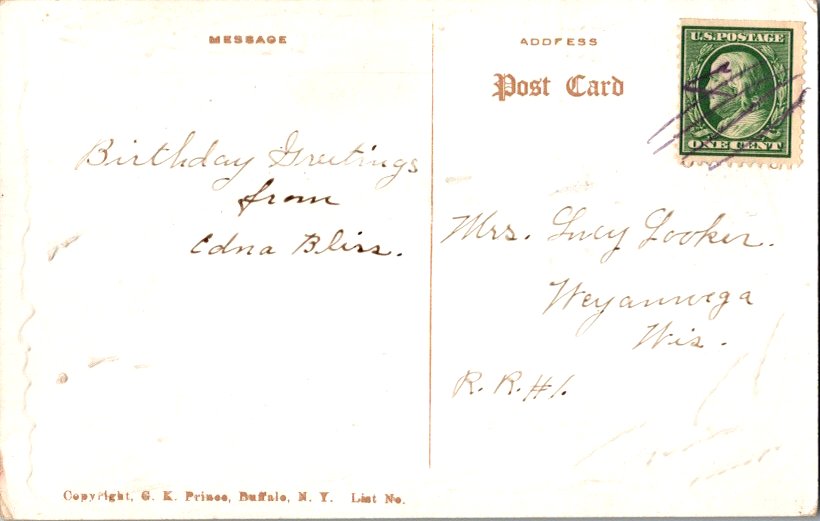 MESSAGE
Birthday Greetings
from
Edna Bliss.
ADDRESS
Post Card
U.S. POSTAGE
ONE CENT
Mrs. Lucy Looker.
Weyauwega
Wis.
R. R. #1.
Copyright, G. K. Prince, Buffalo, N. Y. List No.